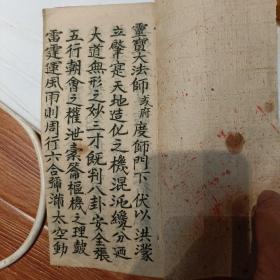 靈寶大法師 或府 度師門下 伏以洪濛
立肇㝎天地造化之機混沌纔分廼
大道無形之妙三才既判八卦安全張
五行朝會之權泄橐籥樞機之理鼓
雷霆運風雨則周行六合彌滿太空動